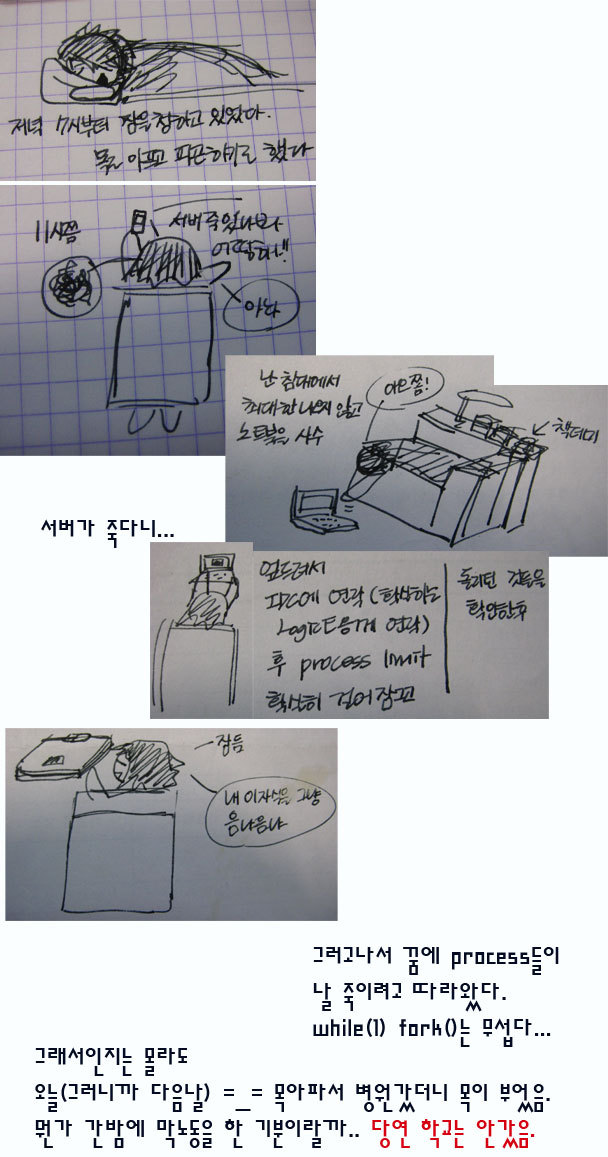 저녁 7시부터 잠을 청하고 있었다.
몸도 아프고 피곤하기도 했다
11시쯤
서버 죽었나보다
어떡해!!
아놔
난 침대에서
최대한 나오지 않고
노트북을 사수
아으쯤!
책더미
서버가 죽다니...
엎드려서
IDC에 연락(확실하는
후 process limit과
확실히 걸어잠꾼
돌리던 것들을
확인한후
잠듬
내 이자식을 그냥
음냐음냐
그러고나서 꿈에 process들이
날 죽이려고 따라왔다.
while(1) fork()는 무섭다...
그래서인지는 몰라도
오늘(그러니까 다음날) =_= 목아파서 병원갔더니 목이 부었음.
뭔가 간밤에 막노동을 한 기분이랄까.. 당연 학교는 안갔음.